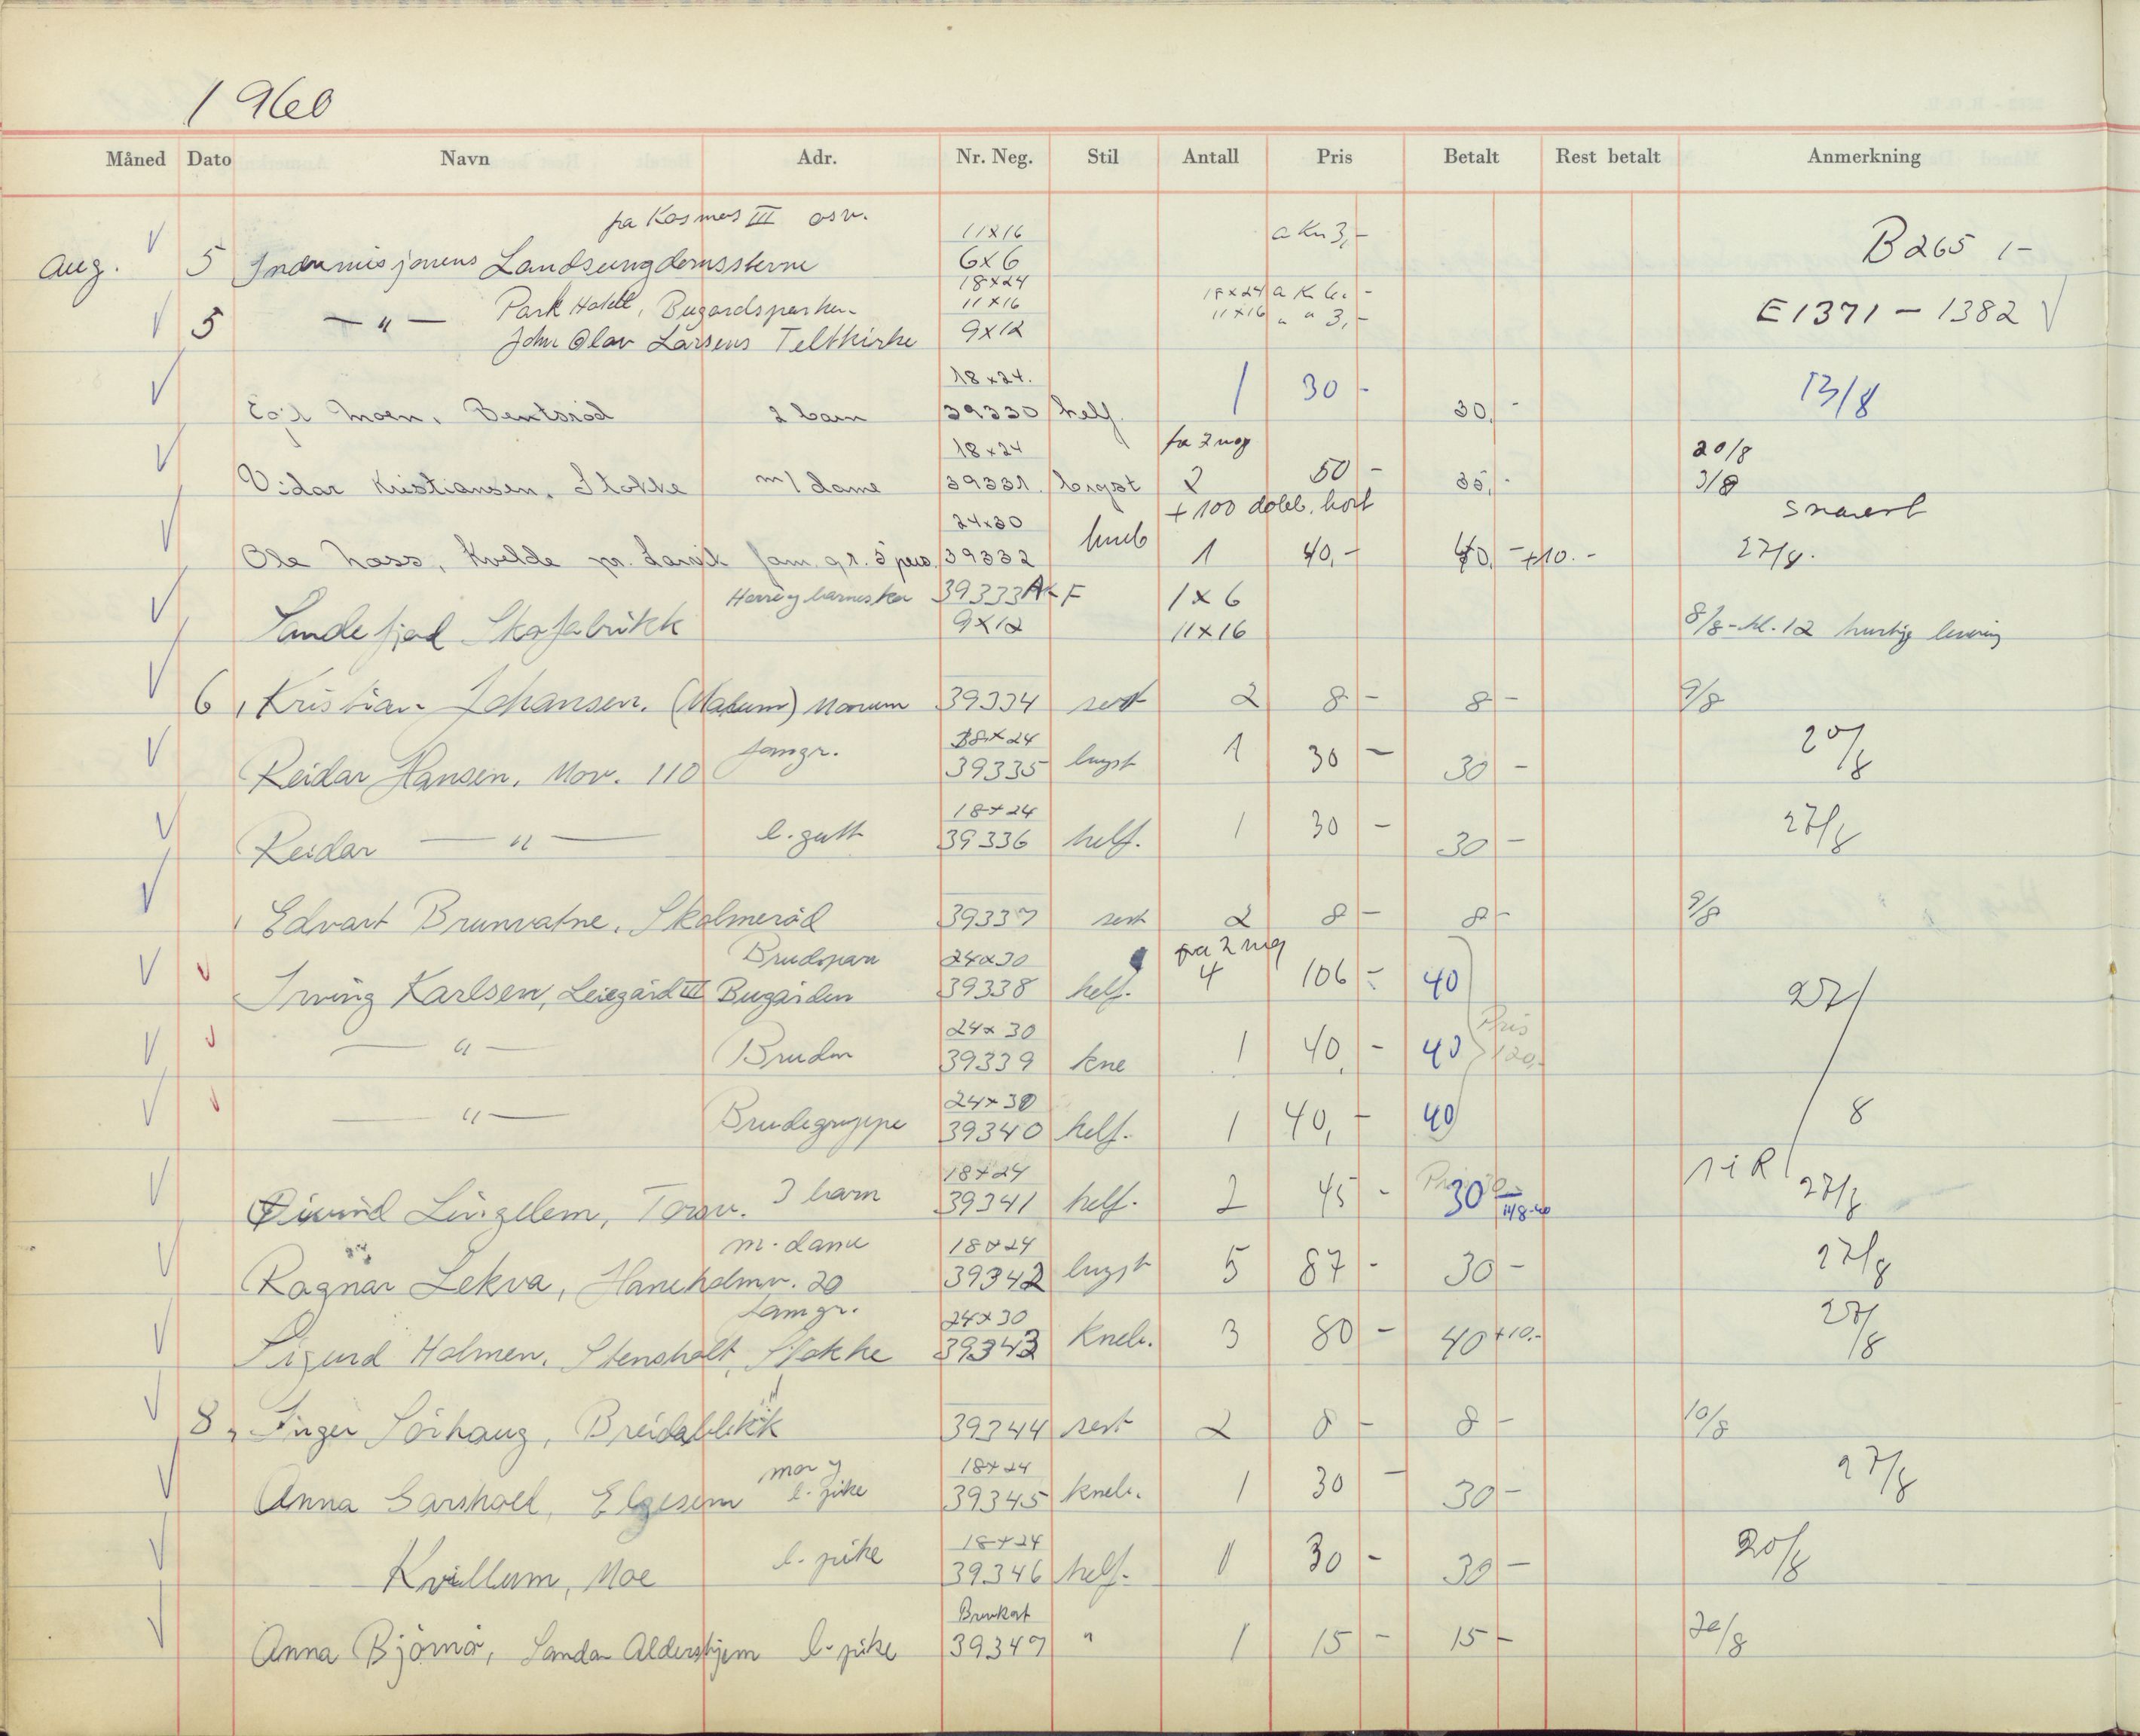 1960
Måned Dato Navn Adr. Nr. Neg. Stil Antall Pris Betalt Rest betalt Anmerkning
på Kosmos III osv. 11x16 a Kr 3,-
Aug. 5 Indremisjonens Landsungdomsstevne 6x6 B265 1-
18x24
Park Hotell, Bugårdsparken 11x16 18x24 a Kr 6. -
5 — " — John Olav Larsens Teltkirke 9x12 11x16 " " 3,- E1371 - 1382
18x24.
Egil Moen, Bentsrød 2 barn 39330 helf. 1 30 - 30,- 13/8
18x24 fra 2 neg 20/8
Vidar Kristiansen, Stokke m/dame 39331. bryst 2 50 - 35,- 3/8
24x30 + 100 dobb. kort snarest
Ole Lass, Kvelde pr. Larvik fam.gr. 5 pers. 39332 kneb 1 40,- 40,- +10.- 27/8.
Herre og barnesko 39333 A-F 1x6
Sandefjord Skofabrikk 9x12 11x16 8/8-kl. 12 hurtig levering
6 Kristian Johansen. (Marum) Marum 39334 sert 2 8 - 8 - 9/8
famgr. 18x24
Reidar Hansen, Mov. 110 39335 bryst 1 30 - 30 - 20/8
18x24
Reidar — " — l. gutt 39336 helf. 1 30 - 30 - 27/8
Edvart Brunvatne, Skolmerød 39337 sert 2 8 - 8 - 9/8
Brudepar 24x30 fra 2 neg
Irving Karlsen, Leiegård III Bugården 39338 helf. 4 106 - 40 27/8
24x30 Pris
— " — Bruden 39339 kne 1 40,- 40 120,-
24x30
— " — Brudegruppe 39340 helf. 1 40,- 40
18x24 1 i R
Øivind Lingelem, Torav. 3 barn 39341 helf. 2 45 - 30 - 11/8-60 27/8
m. dame 18x24
Ragnar Lekva, Haneholmv. 20 39342 bryst 5 87 - 30 - 27/8
famgr. 24x30
Sigurd Holmen, Stensholt, Stokke 39343 Kneb. 3 80 - 40 +10.- 27/8
8 Inger Sörhaug, Breidablikk 39344 sert 2 8 - 8 - 10/8
mor og 18x24
Anna Garsholl, Elgesem l. pike 39345 kneb. 1 30 - 30 - 27/8
18x24
Kvillum, Moe l. pike 39346 helf. 1 30 - 30 - 20/8
Brevkort
Anna Björnö, Sandar Aldershjem l. pike 39347 " 1 15 - 15 - 20/8